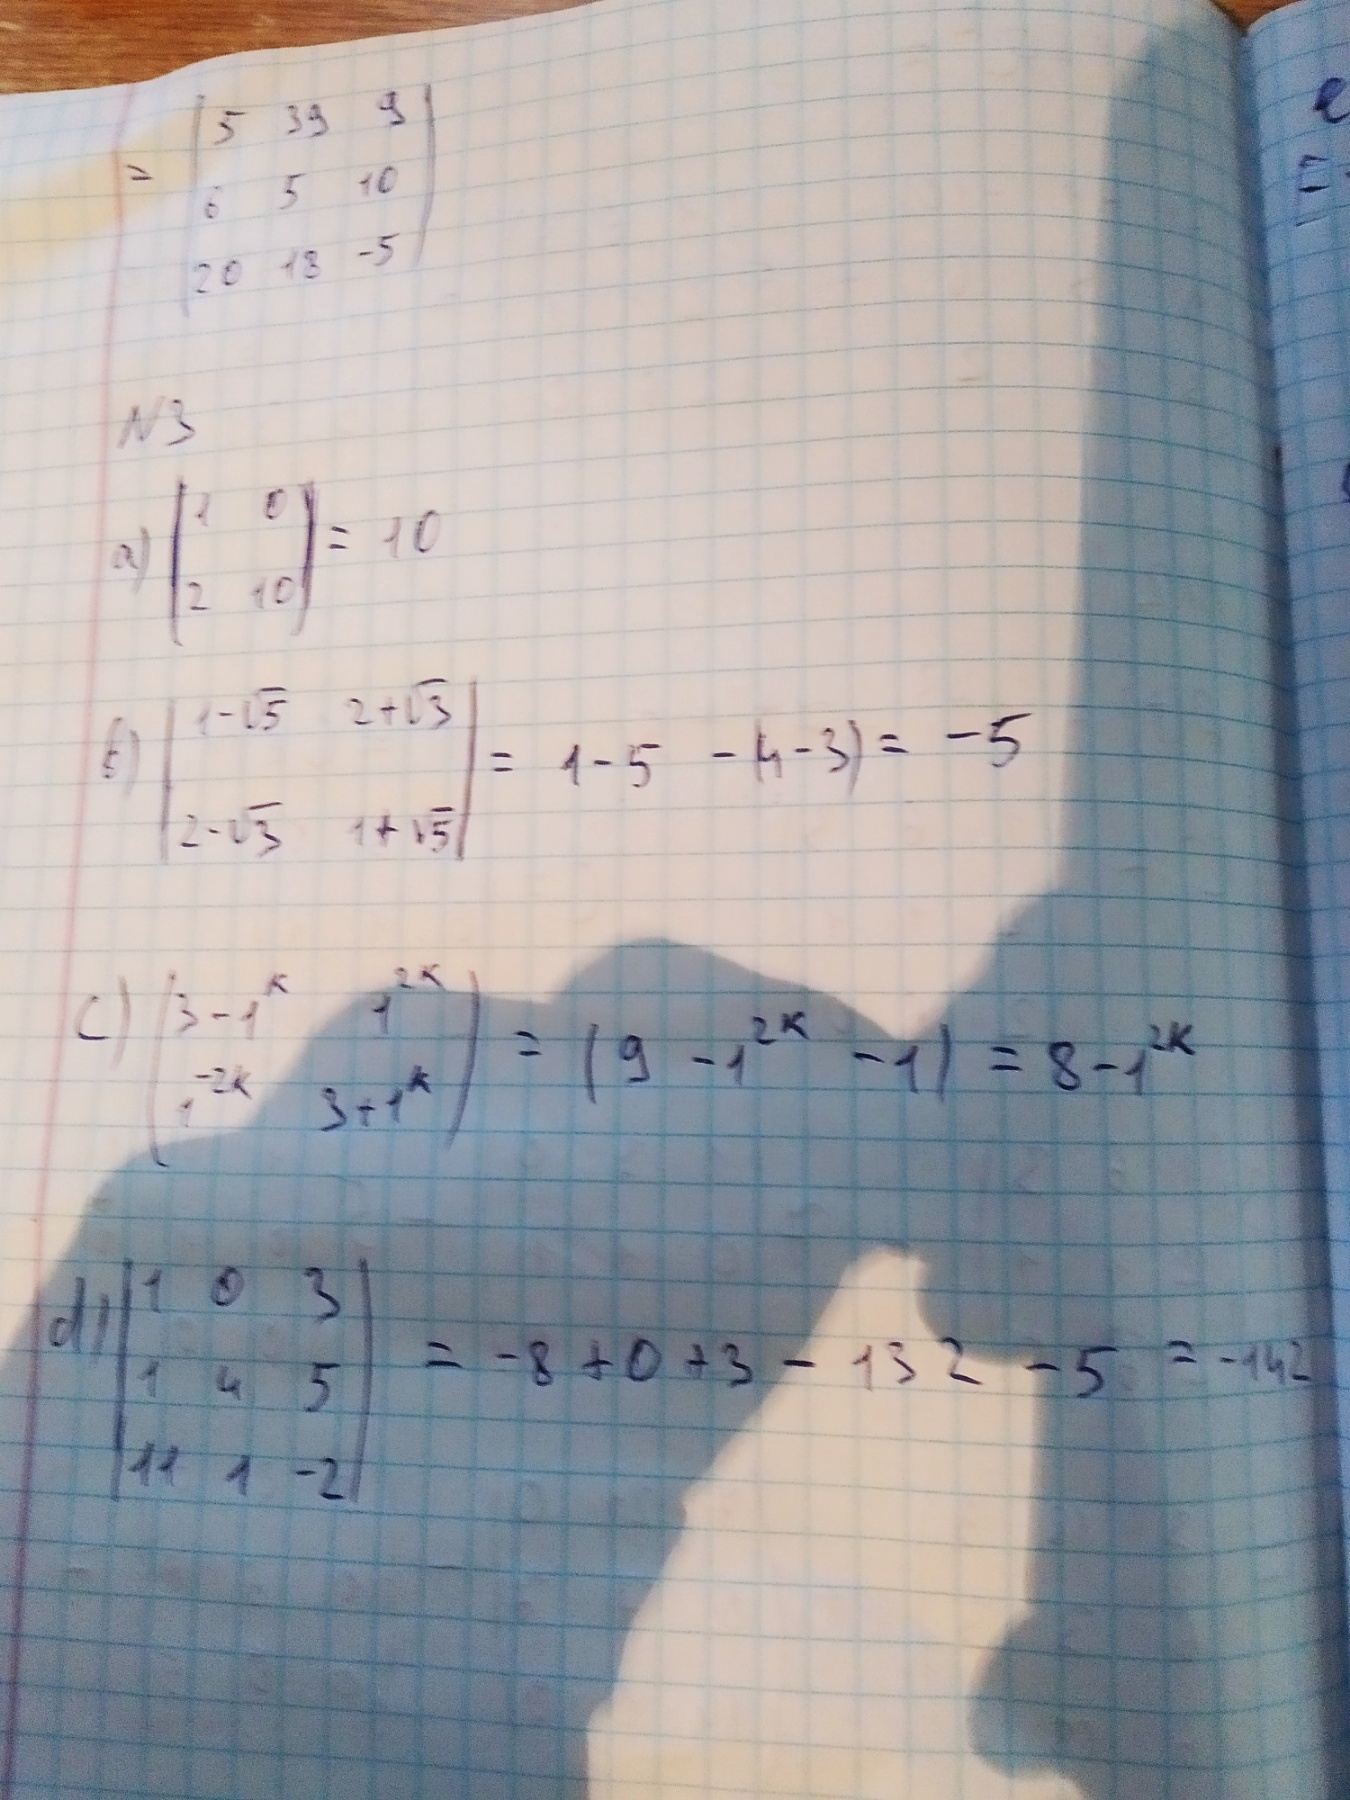 = | 5 39 9 |
| 6 5 10 |
| 20 18 -5 |
N3
a) | 1 0 |
| 2 10 | = 10
б) | 1-√5 2+√3 |
| 2-√3 1+√5 | = 1-5 -(4-3) = -5
c) ( 3-1^к 1^2к )
( 1^-2к 3+1^к ) = (9 -1^2к -1) = 8-1^2к
d) | 1 0 3 |
| 1 4 5 | = -8+0+3-132-5 = -142
| 11 1 -2 |